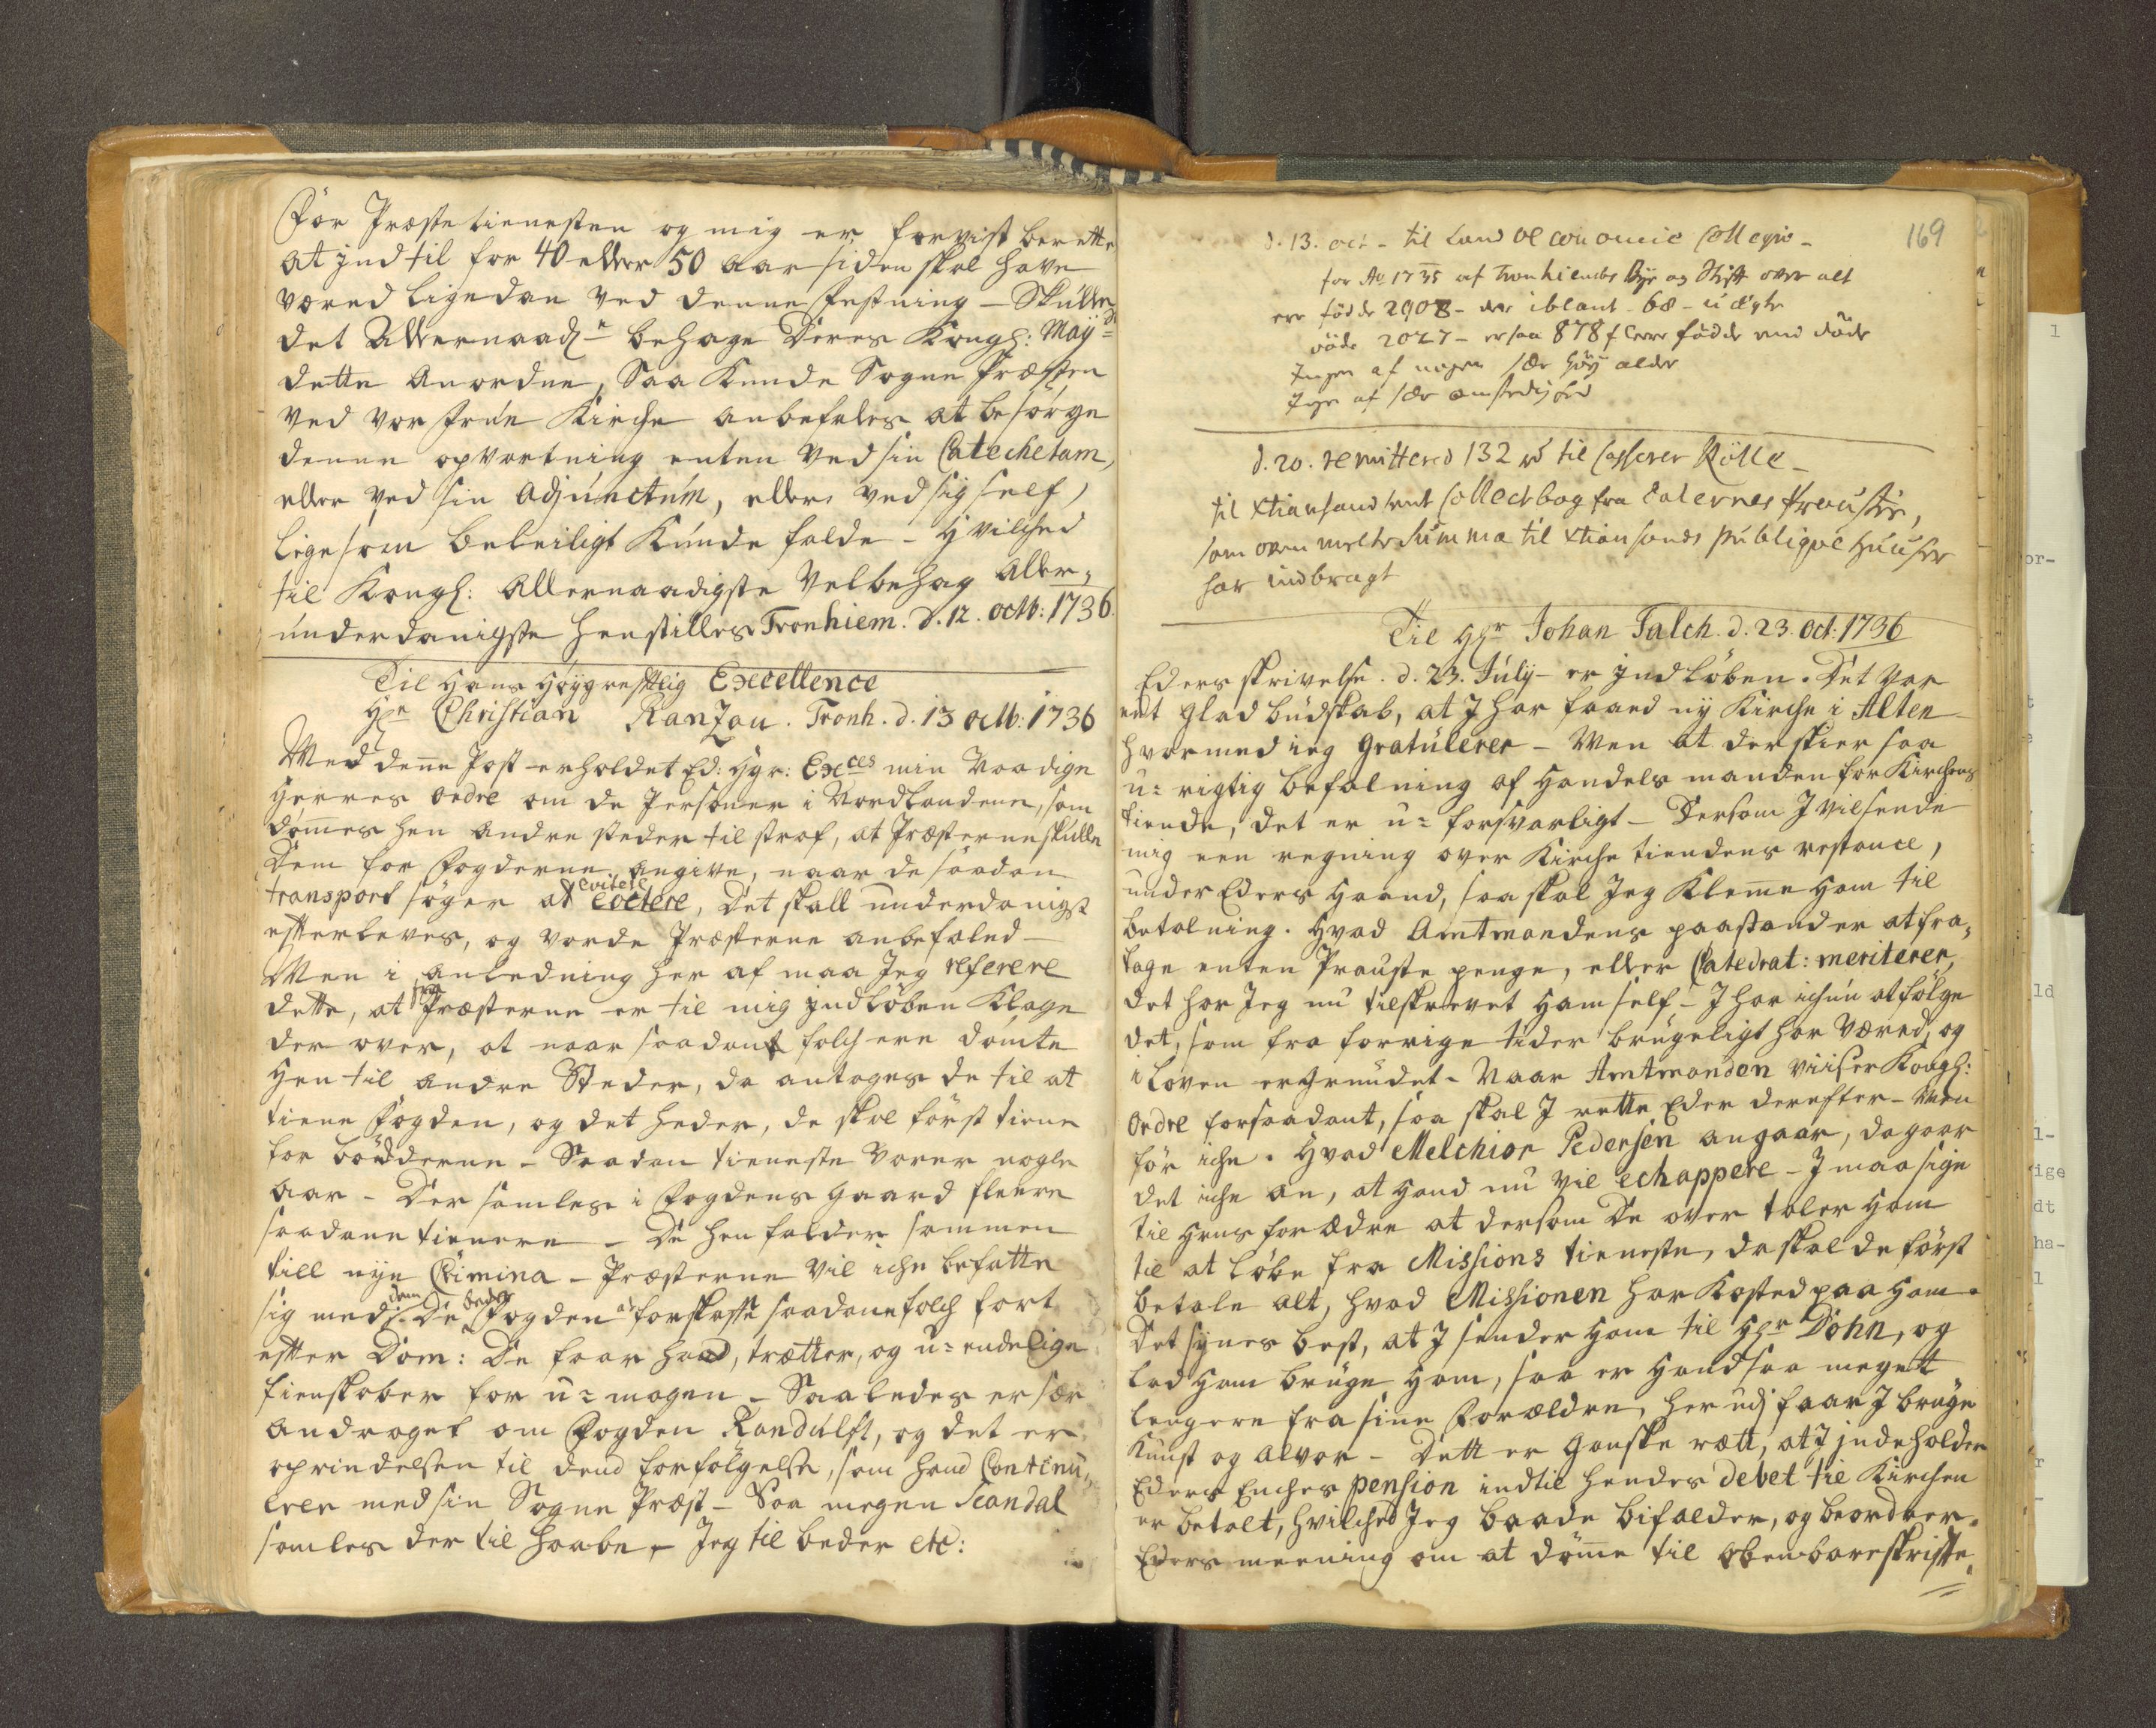 For Præste tienesten og mig er forvist berette
at ind til for 40 eller 50 aar siden skal have
været ligedan ved denne Festning - Skulle
det Allernaadr behage Deres Kongl: Mayst
dette anordne, Saa kunde Sogne Præsten
ved vor Frue Kirche anbefales at besørge
denne opvartning enten ved sin Catechetam,
eller ved sin Adjunctum, eller ved sig self,
lige som beleiligt kunde falde - Hvilched
til Kongl: Allernaadigste Velbehag Aller-
underdanigste henstilles Tronhiem. d. 12. octb: 1736.
Til Hans Høygrefflig Excellence
Hr Christian Ranzau. Tronh. d. 13 octb: 1736
Med denne Post erholdet Ed: Hgr: Exces min Naadige
Herres ordre om de Personer i Nordlandene, som
dømes hen andre steder til straf, at Præsterne skulle
Dem for Fogderne angive, naar de saadan
transport søger at evitere, Det skall underdanigst
efterleves, og vorde Præsterne anbefaled -
Men i anledning her af maa Jeg referere
dette, at fra Præsterne er til mig indløben Klage
der over, at naar saadant folch ere dømte
hen til andre Steder, da antages de til at
tiene Fogden, og det heder, de skal først tiene
for bøderne - Saadan tieneste varer nogle
aar - Der samles i Fogdens gaard fleere
saadane tienere - De henfalder sammen
till nye Crimina - Præsterne vil iche befatte
sig med dem. De beder Fogden at forskaffe saadane folch fort
efter Dom: De faar had, trætter, og u-endelige
fienskaber for u-magen - Saaledes er hær
andraget om Fogden Randulft, og det er
oprindelsen til dend forfølgelse, som hand Continu-
erer med sin Sogne Præst - Saa megen Scandal
samles der til haabe, - Jeg til beder etc:
169
d. 13. oct - til Land Oeconomie Collegio -
for Ao 1735 af Tronhiembs Bye og Stift over alt
ere fødde 2908 - der iblant 68 - u ægte
døde 2027 - er saa 878 flere fødde end døde
Ingen af nogen sær høy alder
Ingen af sær omstendighed
d. 20. remittered 132 rd til Casserer Rølle -
til Xtiansand sent Collectbog fra Dalernes Proustie,
som oven melte Summa til Xtiansands publique Huuser
har indbragt
Til Hr Johan Falch. d. 23. Oct: 1736
Eders skrivelse. d. 23. July - er indløben. Det var
ett glad budskab, at I har faaed ny Kirche i Alten
hvormed ieg gratulerer - Men at der skier saa
u-rigtig befalning af Handels manden for Kirchens
tiende, det er u-forsvarligt - Dersom I vil sende
mig een regning over Kirche tiendens restance,
under Eders haand, saa skal Jeg Klemme ham til
betalning. Hvad Amtmandens paastand er at fra-
tage enten Prouste penge, eller Catedrat: meriterer,
det har Jeg nu tilskrevet ham self - I har ichun at følge
det, som fra forrige tider brugeligt har været, og
i Loven er grundet - Naar Amtmanden viiser Kongl:
Ordre for saadant, saa skal I rette Eder derefter - Men
før iche. Hvad Melchior Pedersen angaar, da gaar
det iche an, at hand nu vil echappere - I maa sige
til hans forældre at dersom De over taler ham
til at løbe fra Missions tieneste, da skal de først
betale alt, hvad Missionen har Kosted paa ham.
Det synes best, at I sender ham til Hr Døhn, og
lad ham bruge ham, saa er hand saa megett
lengere fra sine Forældre, her udj faar I bruge
Kunst og alvor - Dett er ganske rett, at I indeholder
Eders Enches pension indtil hendes debet til Kirchen
er betalt, hvilched Jeg baade bifalder, og beordrer.
Eders meening om at dømme til obenbare skrifte